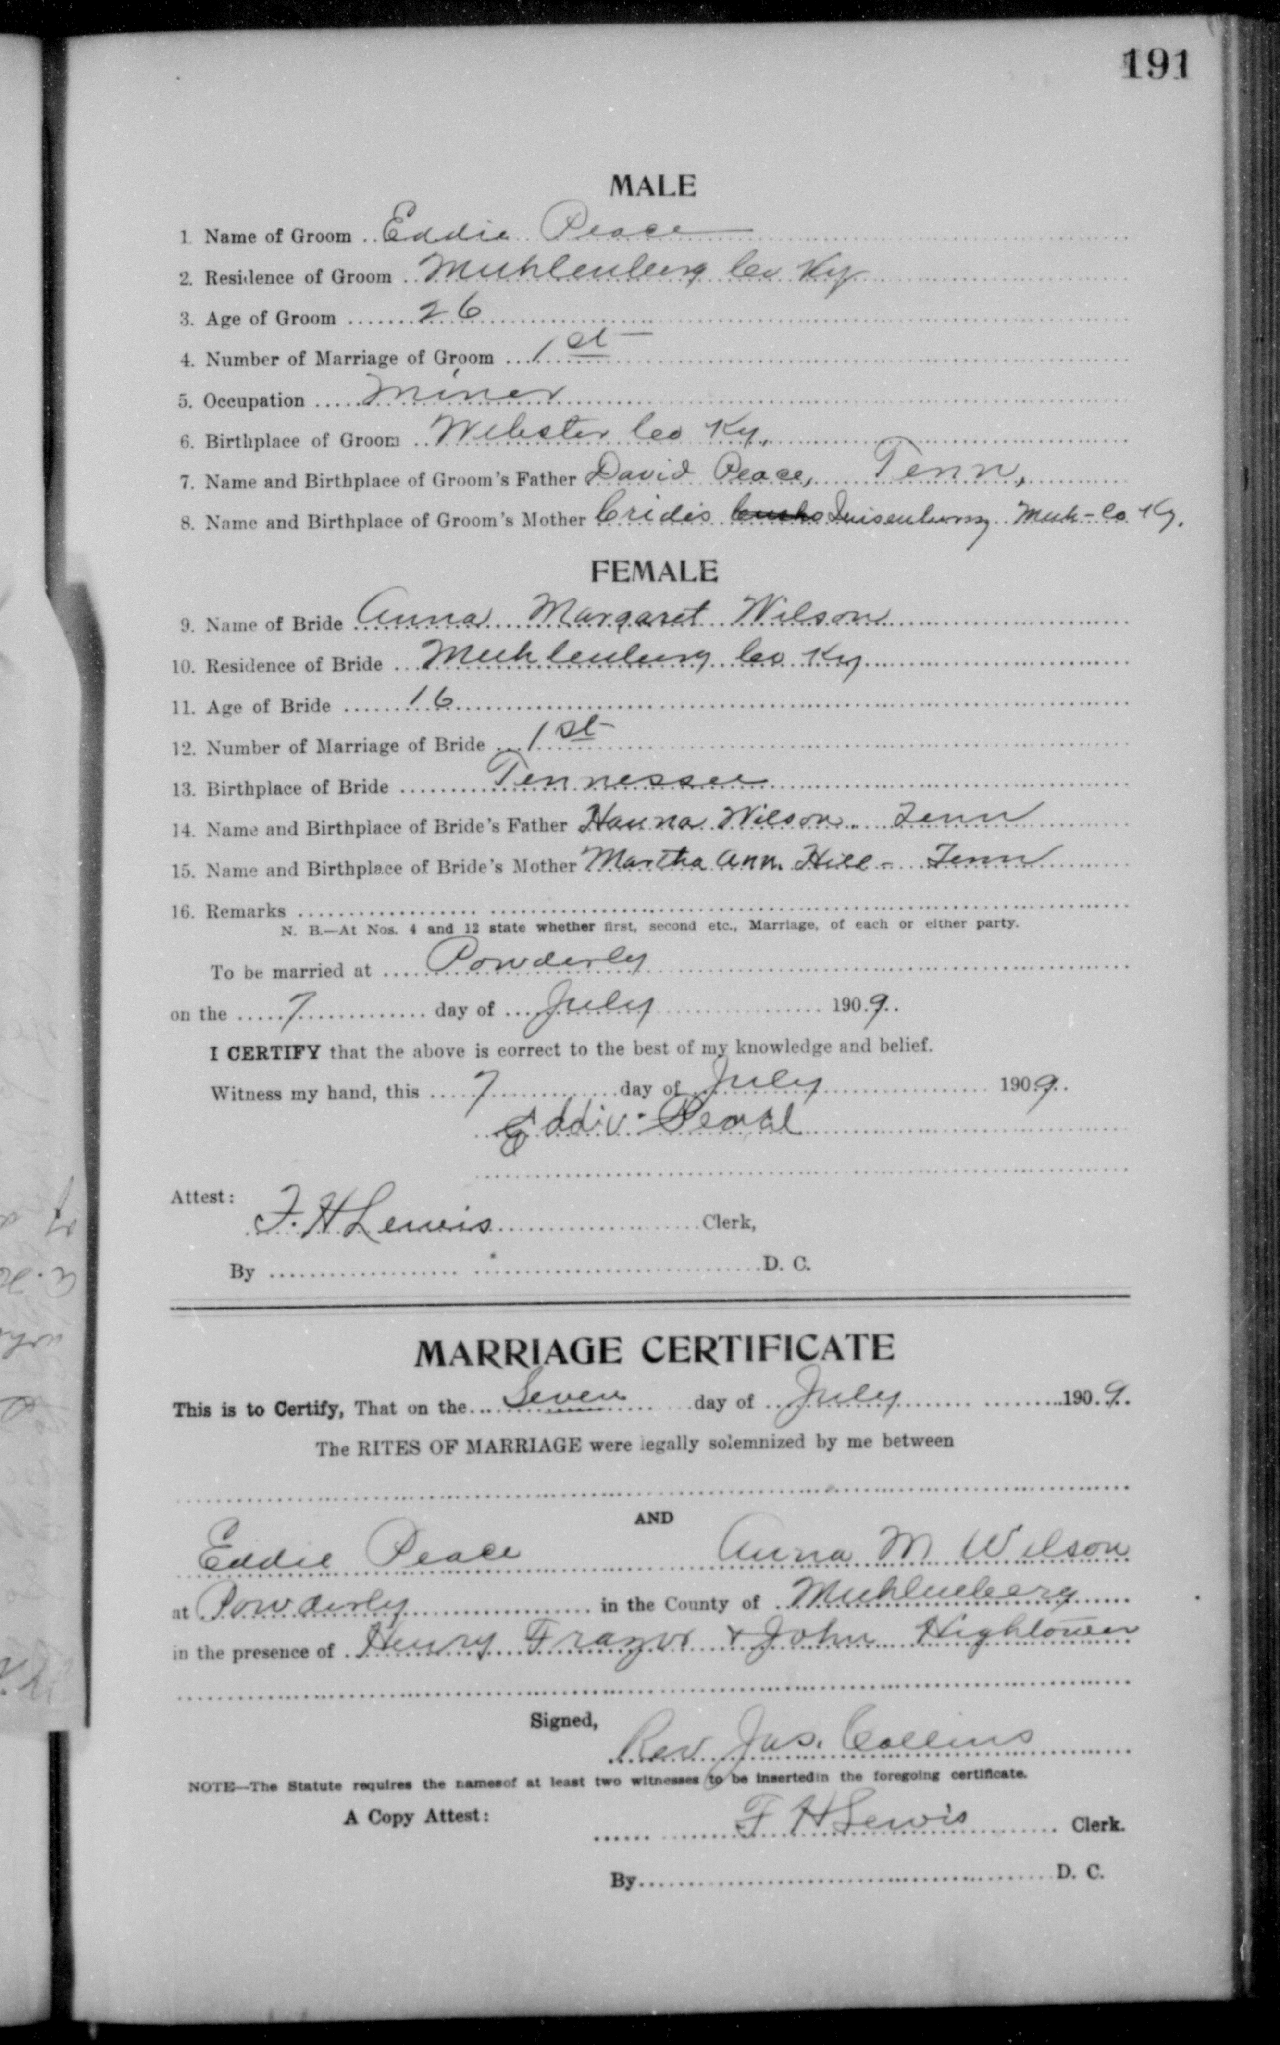 191
MALE
1 Name of Groom Eddie Peace
2. Residence of Groom Muhlenberg Co Ky
3. Age of Groom 26
4. Number of Marriage of Groom 1st
5. Occupation Miner
6. Birthplace of Groom Webster Co Ky,
7. Name and Birthplace of Groom's Father David Peace, Tenn,
8. Name and Birthplace of Groom's Mother Muh-Co Ky.
FEMALE
9. Name of Bride Anna Margaret Wilson
10. Residence of Bride Muhlenburg Co Ky
11. Age of Bride 16
12. Number of Marriage of Bride 1st
13. Birthplace of Bride Tennessee
14. Name and Birthplace of Bride's Father Wilson. Tenn
15. Name and Birthplace of Bride's Mother Martha Ann Hill - Tenn
16. Remarks
N. B.—At Nos. 4 and 12 state whether first, second etc., Marriage, of each or either party.
To be married at Powderly
on the 7 day of July 1909.
I CERTIFY that the above is correct to the best of my knowledge and belief.
Witness my hand, this 7 day of July 1909.
Eddie
Attest:
F. H Lewis Clerk,
By D. C.
MARRIAGE CERTIFICATE
This is to Certify, That on the Seven day of July 1909.
The RITES OF MARRIAGE were legally solemnized by me between
AND
Eddie Peace Anna M Wilson
at Powderly in the County of Muhlenberg
in the presence of Henry & John Hightower
Signed,
Rev Jas. Collins
NOTE—The Statute requires the namesof at least two witnesses to be insertedin the foregoing certificate.
A Copy Attest:
F H Lewis Clerk.
By D. C.